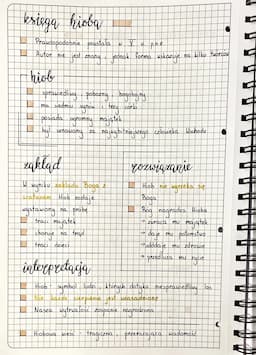 księga hioba
Prawdopodobnie powstała w V w p.n.e.
Autor nie jest znany, jednak forma wskazuje na kilku twórców
hiob
sprawiedliwy, pobożny, bogobojny
ma siedmiu synów i trzy córki
posiada ogromny majątek
był uznawany za najwybitniejszego człowieka Wschodu
zakład
W wyniku zakładu Boga z
szatanem Hiob zostaje
wystawiony na próbę
traci majątek
choruje na trąd
traci dzieci
rozwiązanie
Hiob nie wyrzeka się
Boga
Bóg nagradza Hioba
- zwraca mu majątek
- daje mu potomstwo
- oddaje mu zdrowie
- przedłuża mu życie
interpretacja
Hiob - symbol ludzi, których dotyka niesprawiedliwy los
Nie każde cierpienie jest uzasadnione
Nasza wytrwałość zostanie nagrodzona
Hiobowa wieść - tragiczna, przerażająca wiadomość